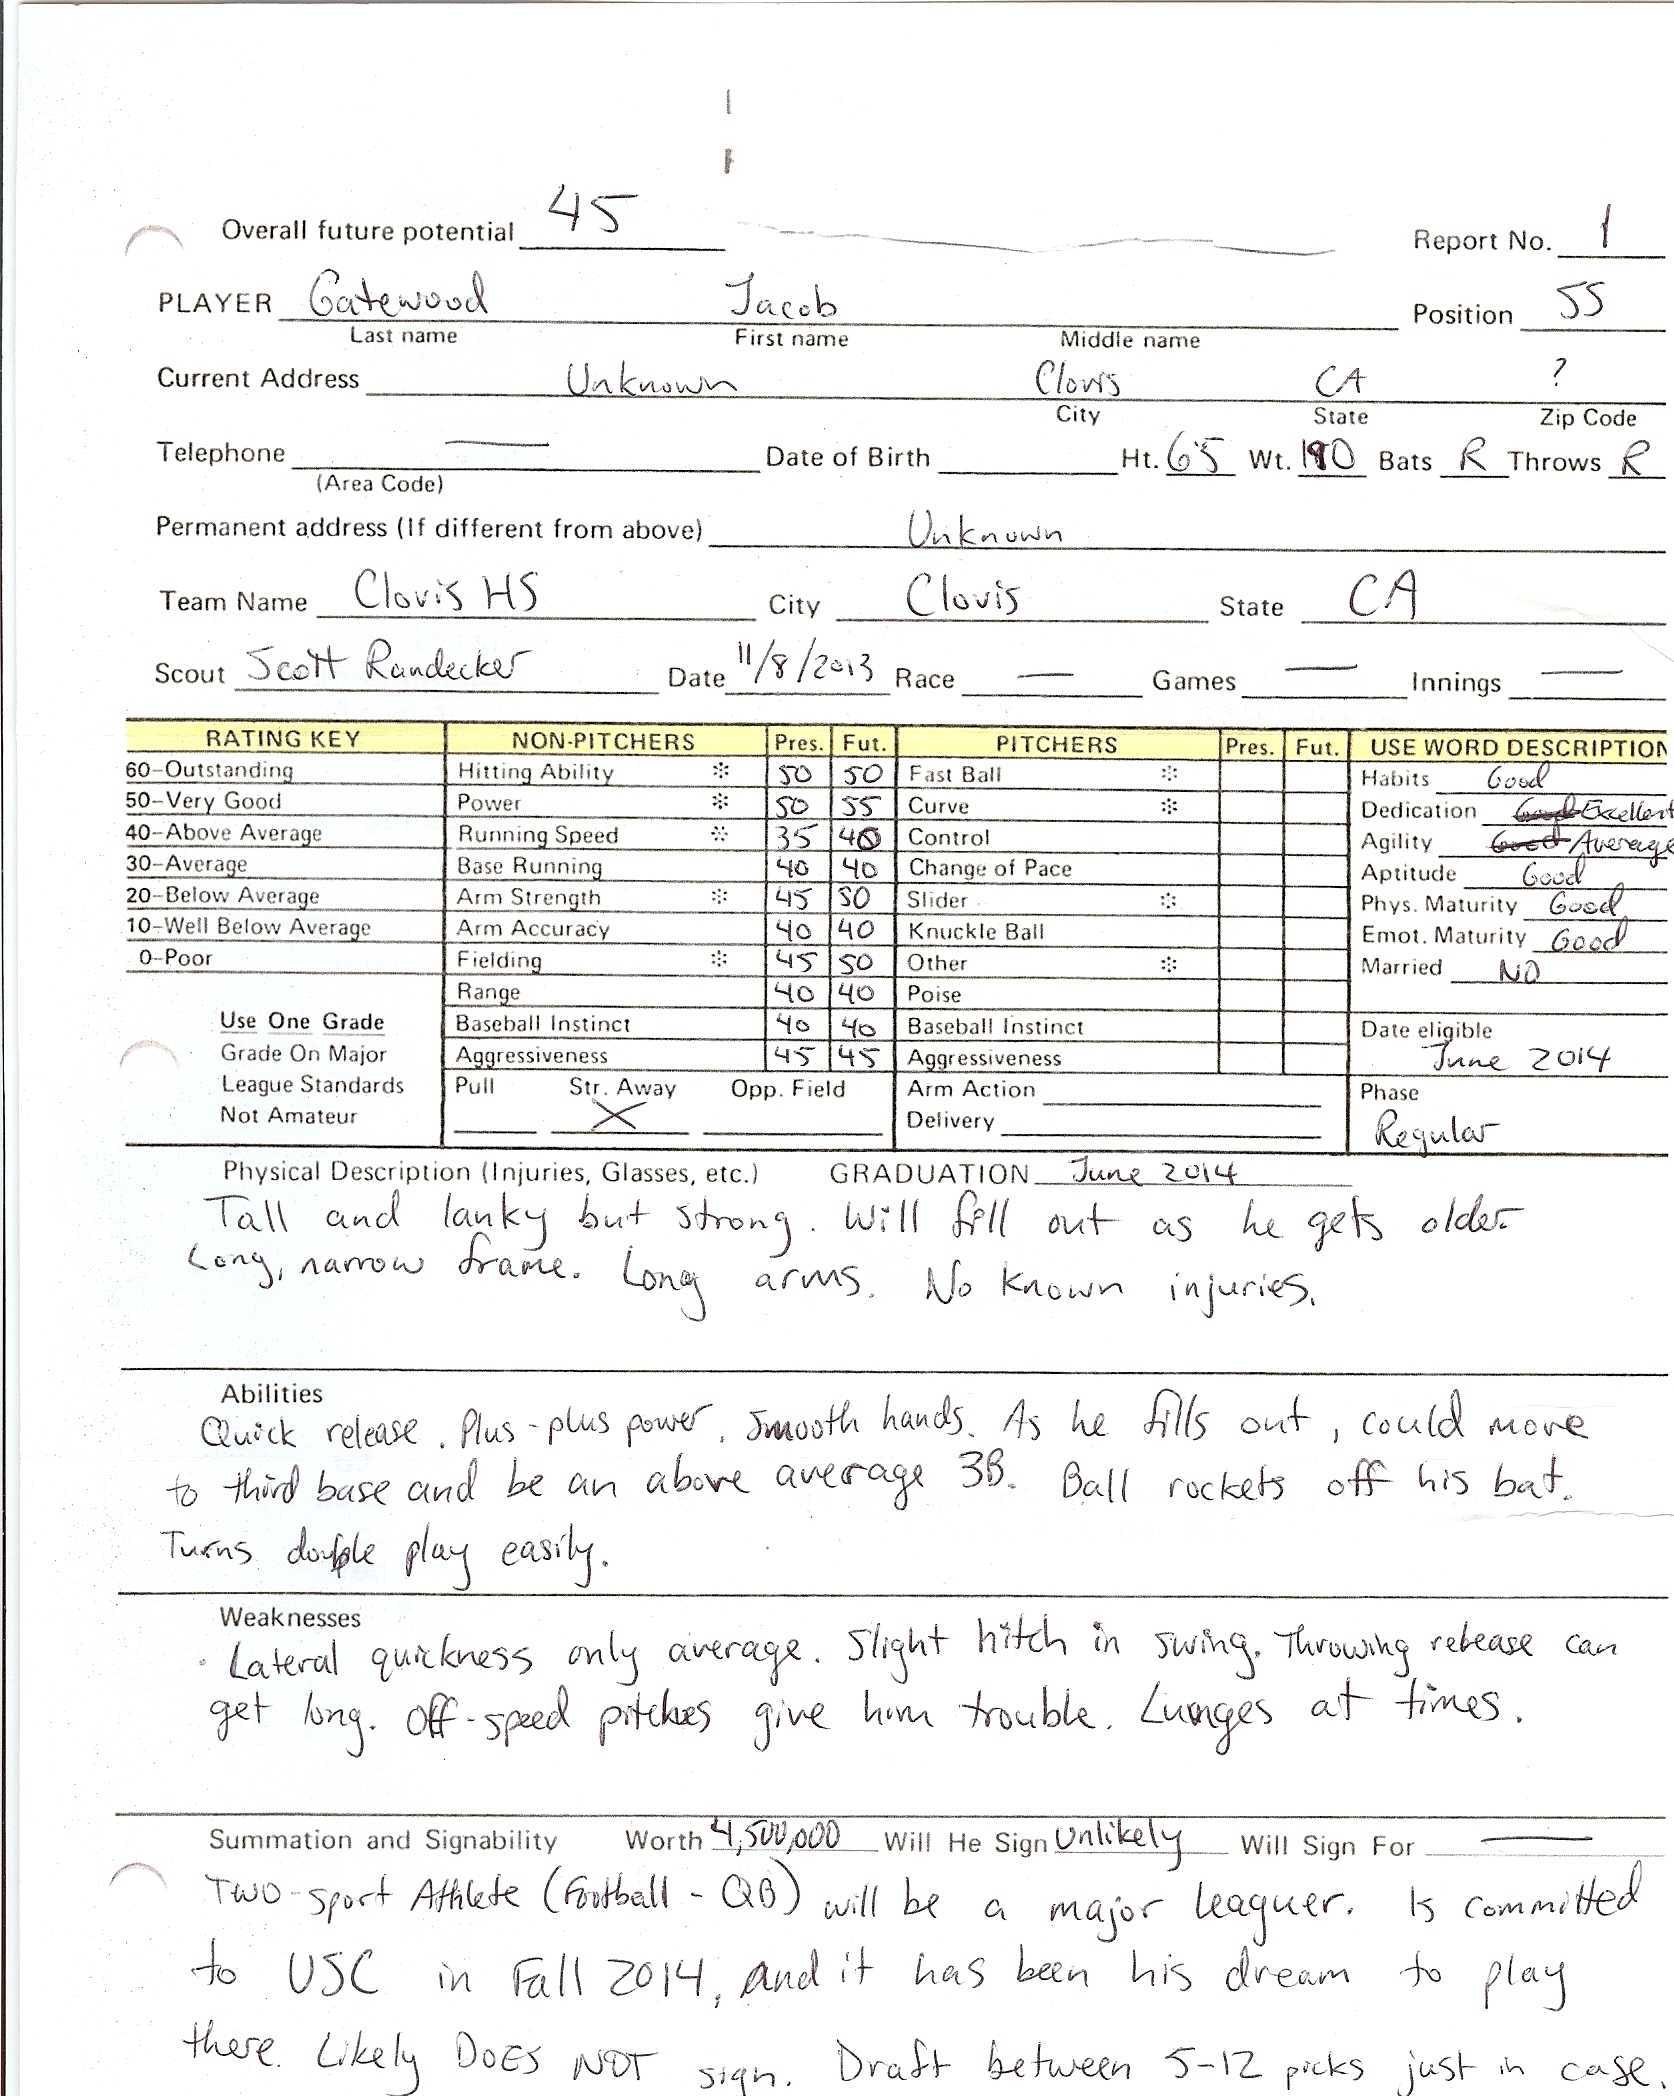 Overall future potential 45
Report No. 1
PLAYER Gatewood Jacob
Position SS
Last name First name Middle name
Current Address Unknown Clovis CA ?
City State Zip Code
Telephone — Date of Birth Ht. 6'5 Wt. 190 Bats R Throws R
(Area Code)
Permanent address (If different from above) Unknown
Team Name Clovis HS City Clovis State CA
Scout Scott Randecker Date 11/8/2013 Race — Games — Innings —
RATING KEY NON-PITCHERS Pres. Fut. PITCHERS Pres. Fut. USE WORD DESCRIPTION
60–Outstanding Hitting Ability * 50 50 Fast Ball * Habits Good
50–Very Good Power * 50 55 Curve * Dedication Good Excellent
40–Above Average Running Speed * 35 40 Control Agility Good Average
30–Average Base Running 40 40 Change of Pace Aptitude Good
20–Below Average Arm Strength * 45 50 Slider * Phys. Maturity Good
10–Well Below Average Arm Accuracy 40 40 Knuckle Ball Emot. Maturity Good
0–Poor Fielding * 45 50 Other * Married NO
Range 40 40 Poise
Use One Grade Baseball Instinct 40 40 Baseball Instinct Date eligible
Grade On Major Aggressiveness 45 45 Aggressiveness June 2014
League Standards Pull Str. Away Opp. Field Arm Action Phase
Not Amateur X Delivery Regular
Physical Description (Injuries, Glasses, etc.) GRADUATION June 2014
Tall and lanky but strong. Will fill out as he gets older.
Long, narrow frame. Long arms. No known injuries.
Abilities
Quick release. Plus-plus power. Smooth hands. As he fills out, could move
to third base and be an above average 3B. Ball rockets off his bat.
Turns double play easily.
Weaknesses
Lateral quickness only average. Slight hitch in swing. Throwing release can
get long. Off-speed pitches give him trouble. Lunges at times.
Summation and Signability Worth 4,500,000 Will He Sign Unlikely Will Sign For —
Two-sport Athlete (Football - QB) will be a major leaguer. Is committed
to USC in Fall 2014, and it has been his dream to play
there. Likely DOES NOT sign. Draft between 5-12 picks just in case.